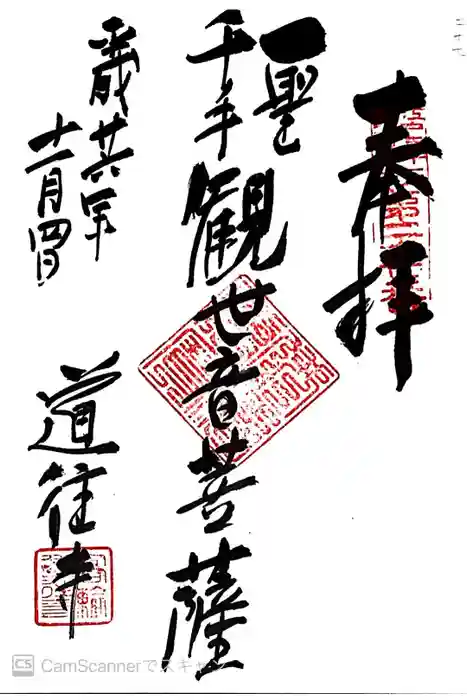 奉拝
聖
千手観世音菩薩
平成廿六年
十一月四日
道往寺
CS CamScannerでスキャン